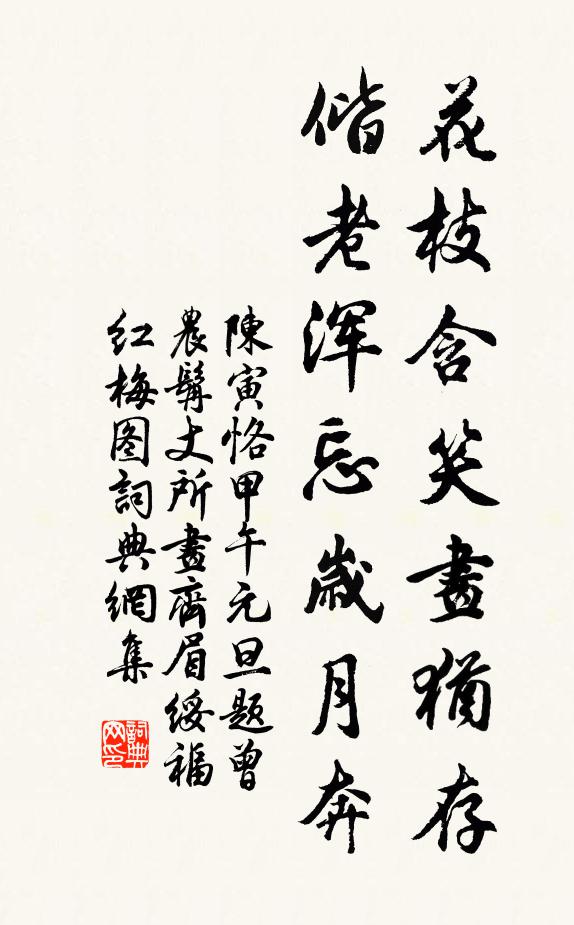 花枝含笑畫猶存
偕老浑忘歲月奔
陳寅恪甲午元旦題曾
農髯丈所畫齊眉綏福
红梅图詞典網集
詞典网印